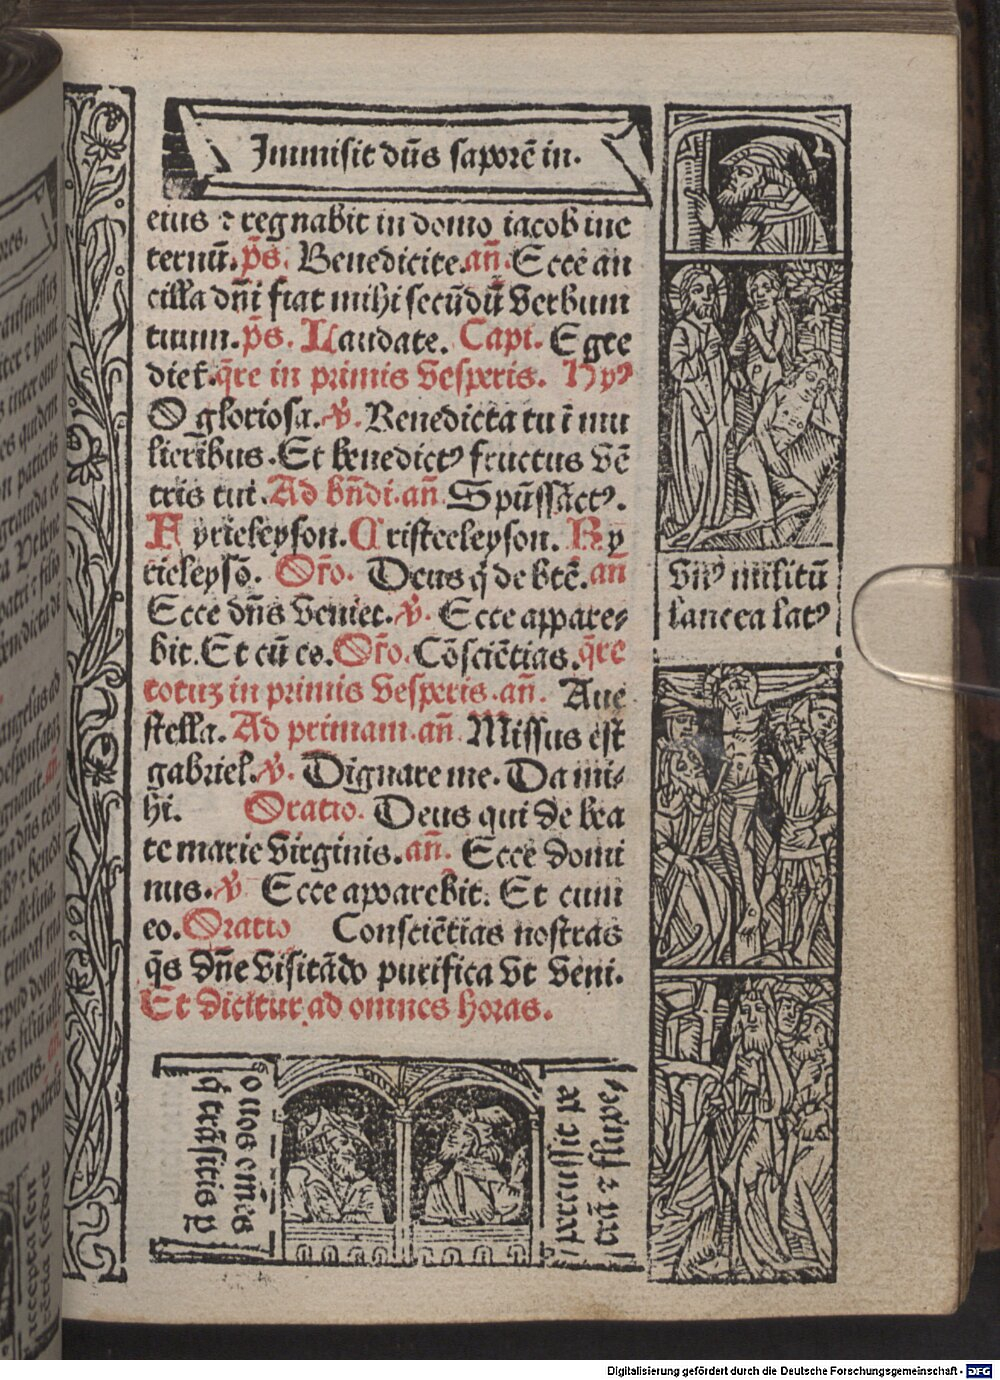 Immisit dn̄s saporē in.
eius ⁊ regnabit in domo iacob in e
ternū. p̄s. Benedicite. an̄. Ecce an
cilla dn̄i fiat mihi secūdū verbum
tuum. p̄s. Laudate. Capi. Egre
diet. q̄re in primis vesperis. Hyꝰ
O gloriosa. ℣. Benedicta tu ī mu
lieribus. Et benedictꝰ fructus vē
tris tui. Ad bn̄di. an̄. Spūssāctꝰ.
Kyrieleyson. Cristeeleyson. Ky
rieleysō. Or̄o. Deus q̄ de btē. an̄
Ecce dn̄s veniet. ℣. Ecce appare⸗
bit. Et cū eo. Or̄o. Cōsciētias. q̄re
totuꝫ in primis vesperis. an̄. Aue
stella. Ad primam. an̄ Missus est
gabriel. ℣. Dignare me. Da mi⸗
hi. Oratio. Deus qui de bea
te marie virginis. an̄. Ecce domi
nus. ℣ Ecce apparebit. Et cum
eo. Oratio Consciētias nostras
q̄s dn̄e visitādo purifica vt veni.
Et dicitur ad omnes horas.
vnꝰ militū
lancea latꝰ
o uos om̄es
q̄ trāsitis ꝑ
percussit ae